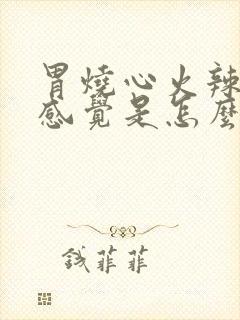 胃燒心火辣
感覺是怎麼
钱菲菲